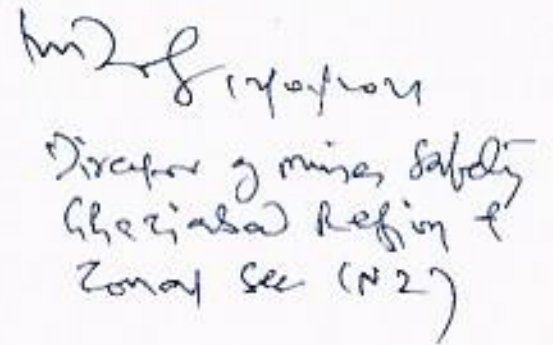 Director of mines Safety
Ghaziabad Region &
Zonal Sec (NZ)